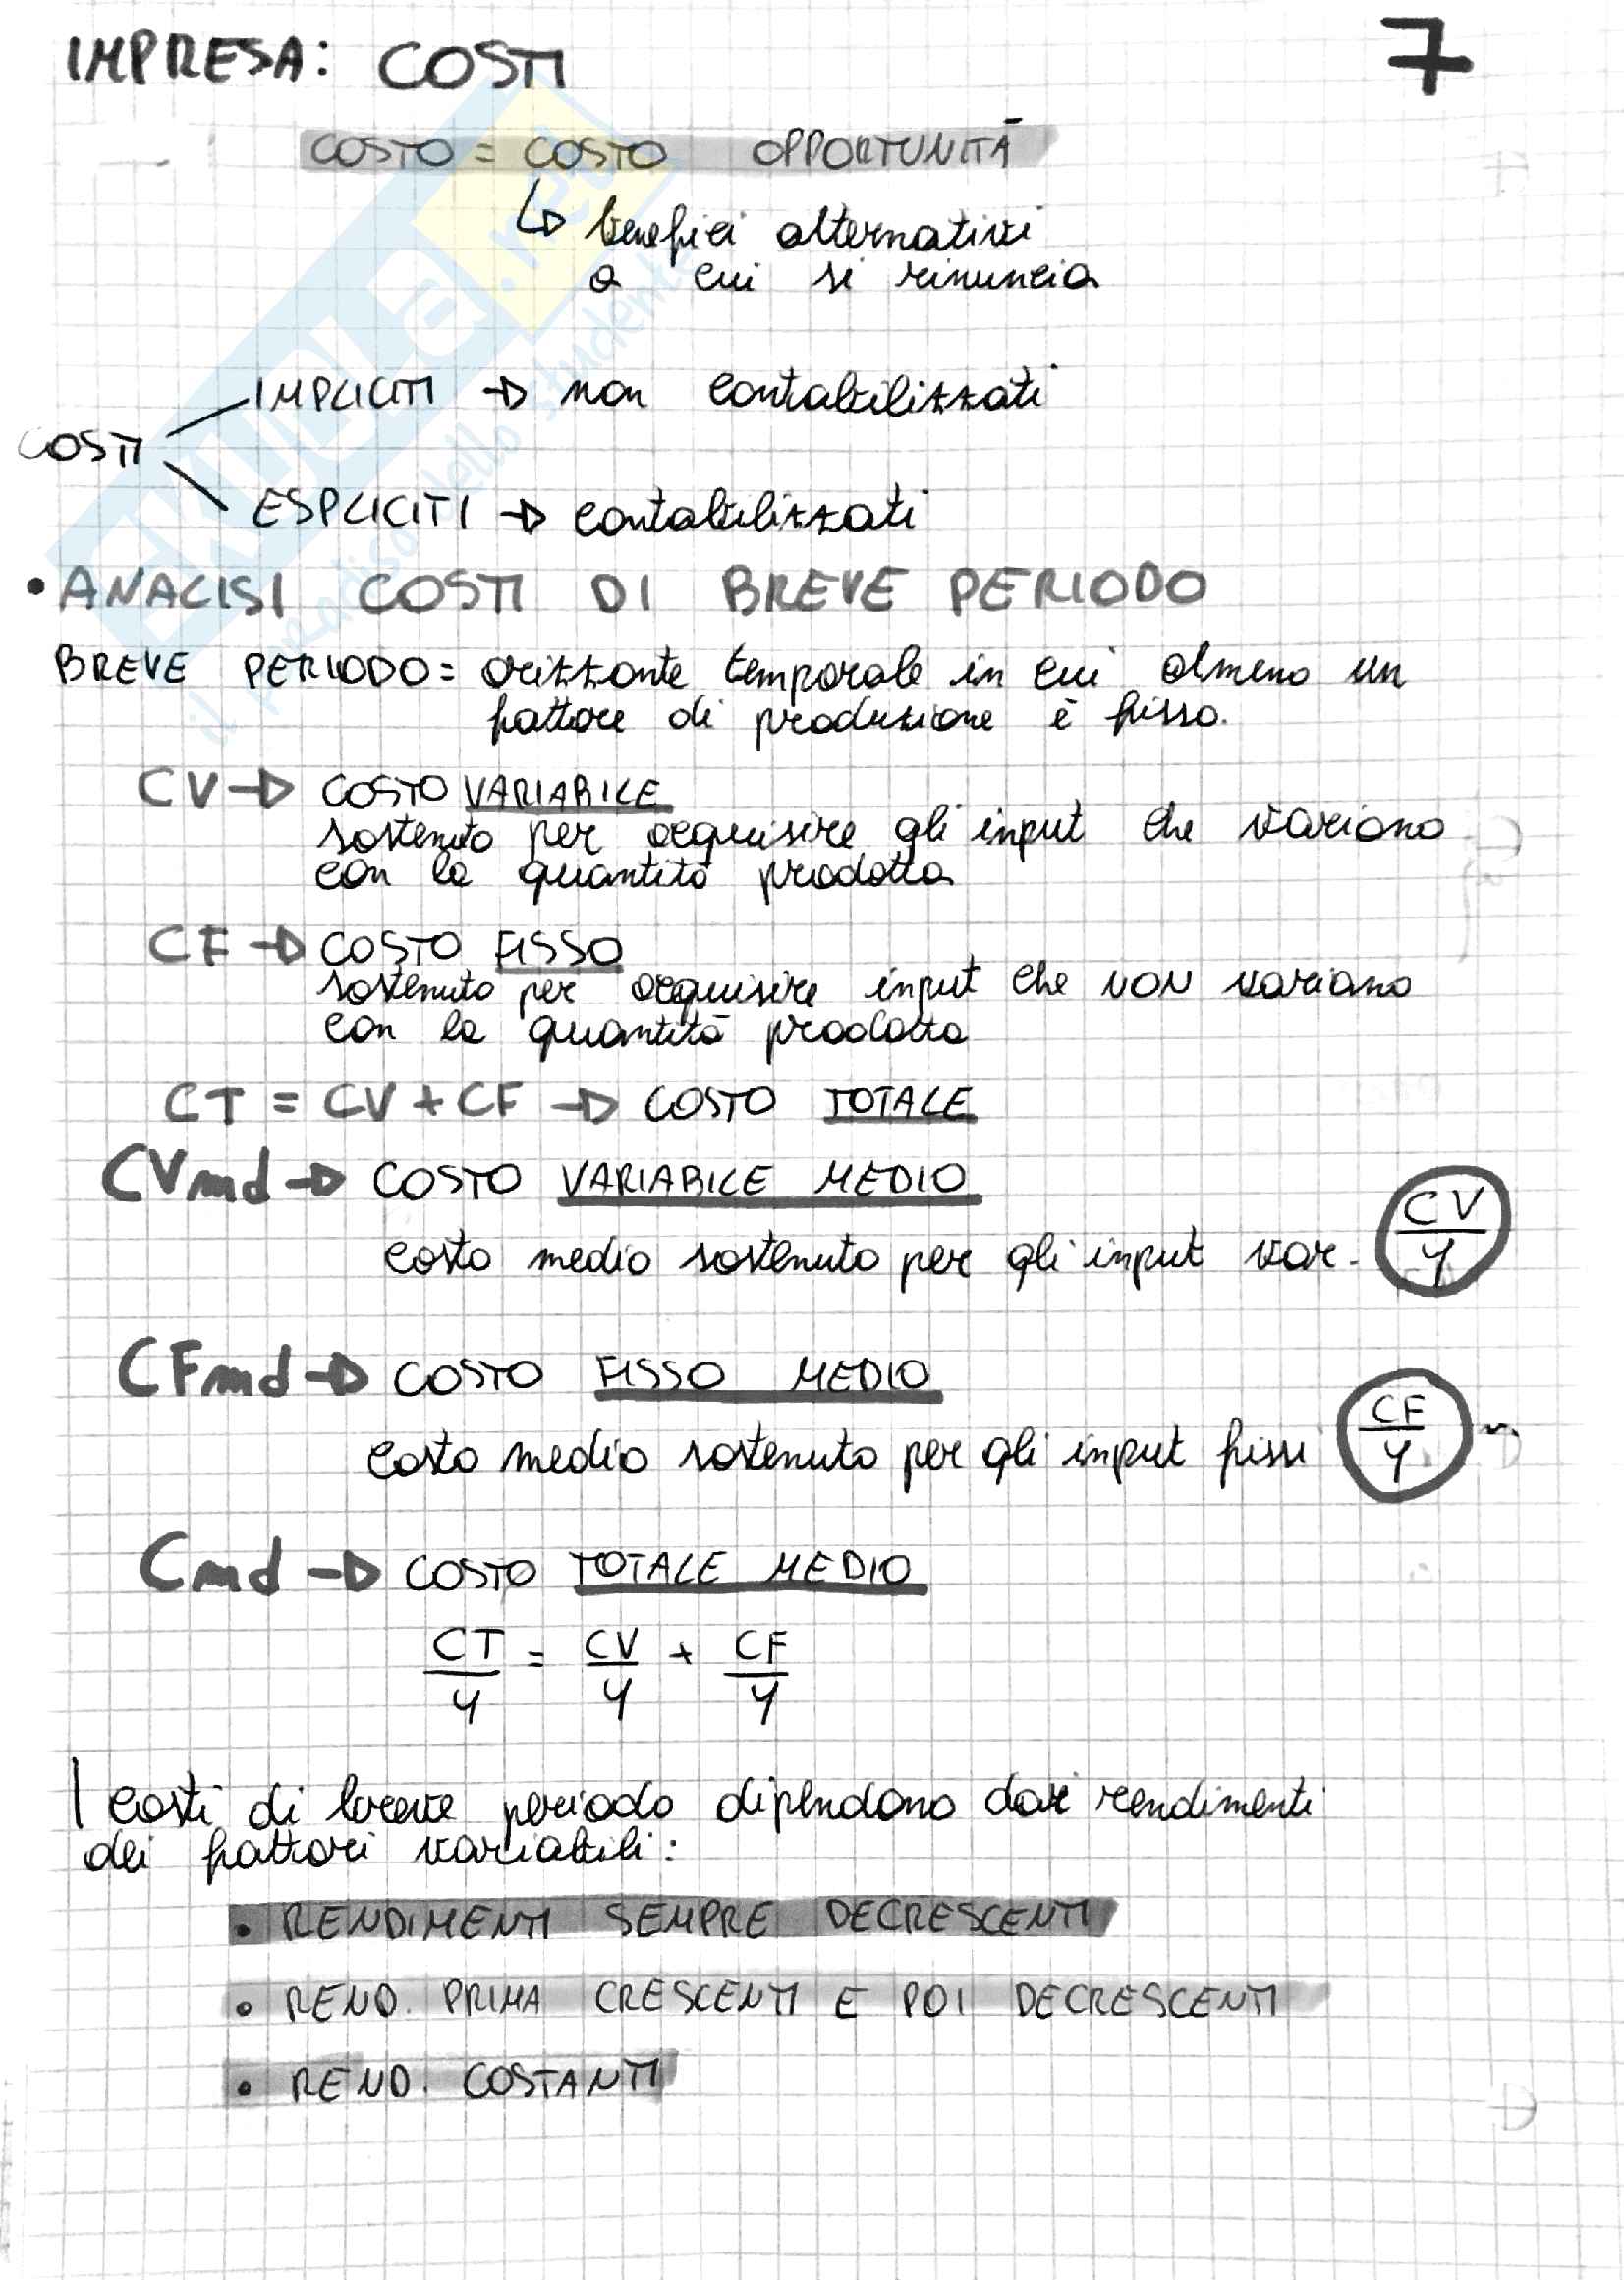 IMPRESA: COSTI
7
COSTO = COSTO OPPORTUNITÀ
↳ benefici alternativi
a cui si rinuncia
IMPLICITI → non contabilizzati
COSTI
ESPLICITI → contabilizzati
• ANALISI COSTI DI BREVE PERIODO
BREVE PERIODO = orizzonte temporale in cui almeno un
fattore di produzione è fisso.
CV → COSTO VARIABILE
sostenuto per acquisire gli input che variano
con la quantità prodotta
CF → COSTO FISSO
sostenuto per acquisire input che NON variano
con la quantità prodotta
CT = CV + CF → COSTO TOTALE
CVmd → COSTO VARIABILE MEDIO
costo medio sostenuto per gli input var. CV/y
CFmd → COSTO FISSO MEDIO
costo medio sostenuto per gli input fissi CF/y
Cmd → COSTO TOTALE MEDIO
CT/y = CV/y + CF/y
I costi di breve periodo dipendono dai rendimenti
dei fattori variabili:
• RENDIMENTI SEMPRE DECRESCENTI
• REND. PRIMA CRESCENTI E POI DECRESCENTI
• REND. COSTANTI
SKUOLA.net
il paradiso dello studente